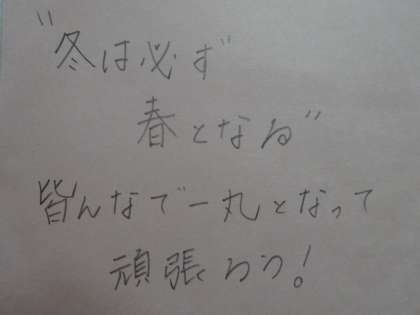 "冬は必ず
春となる"
皆んなで一丸となって
頑張ろう!